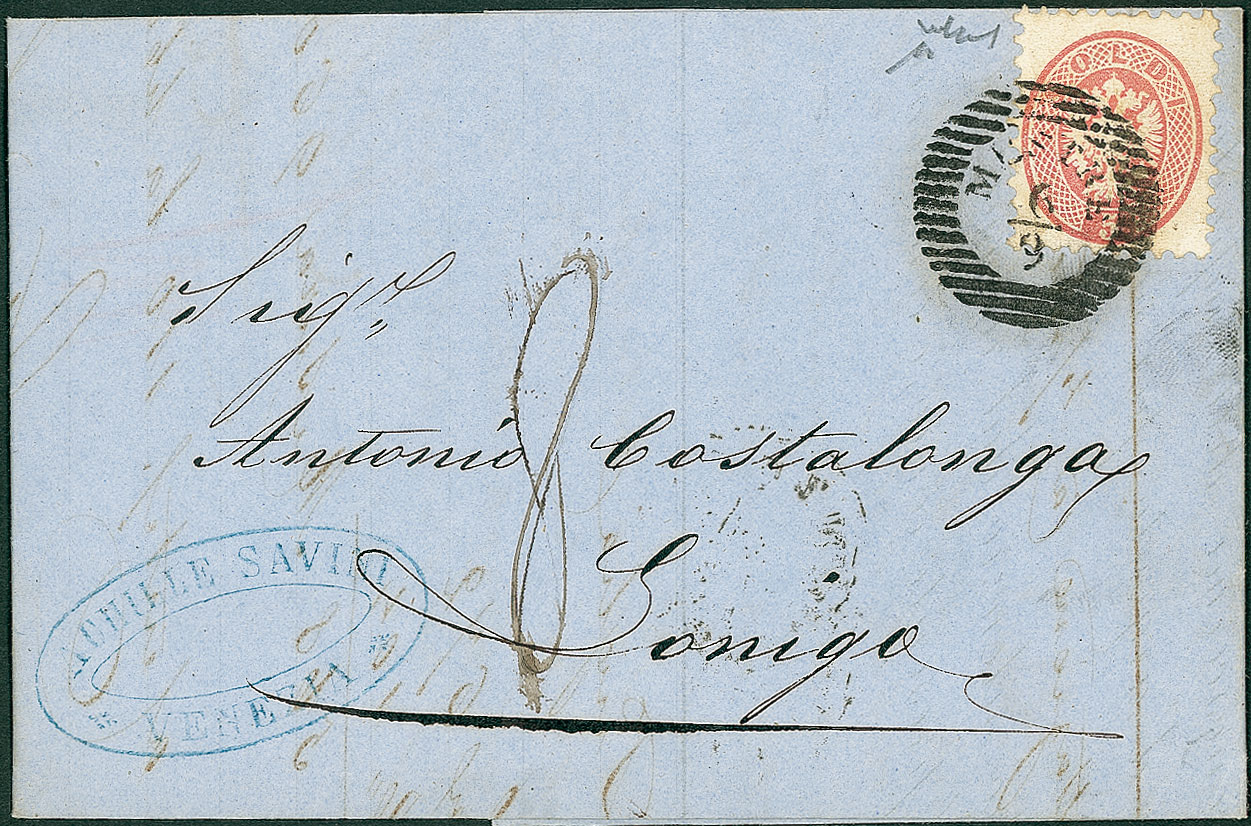 SOLDI
9/6
Sig.r
Antonio Costalonga
8
Lonigo
ACHILLE SAVINI
* VENEZIA *